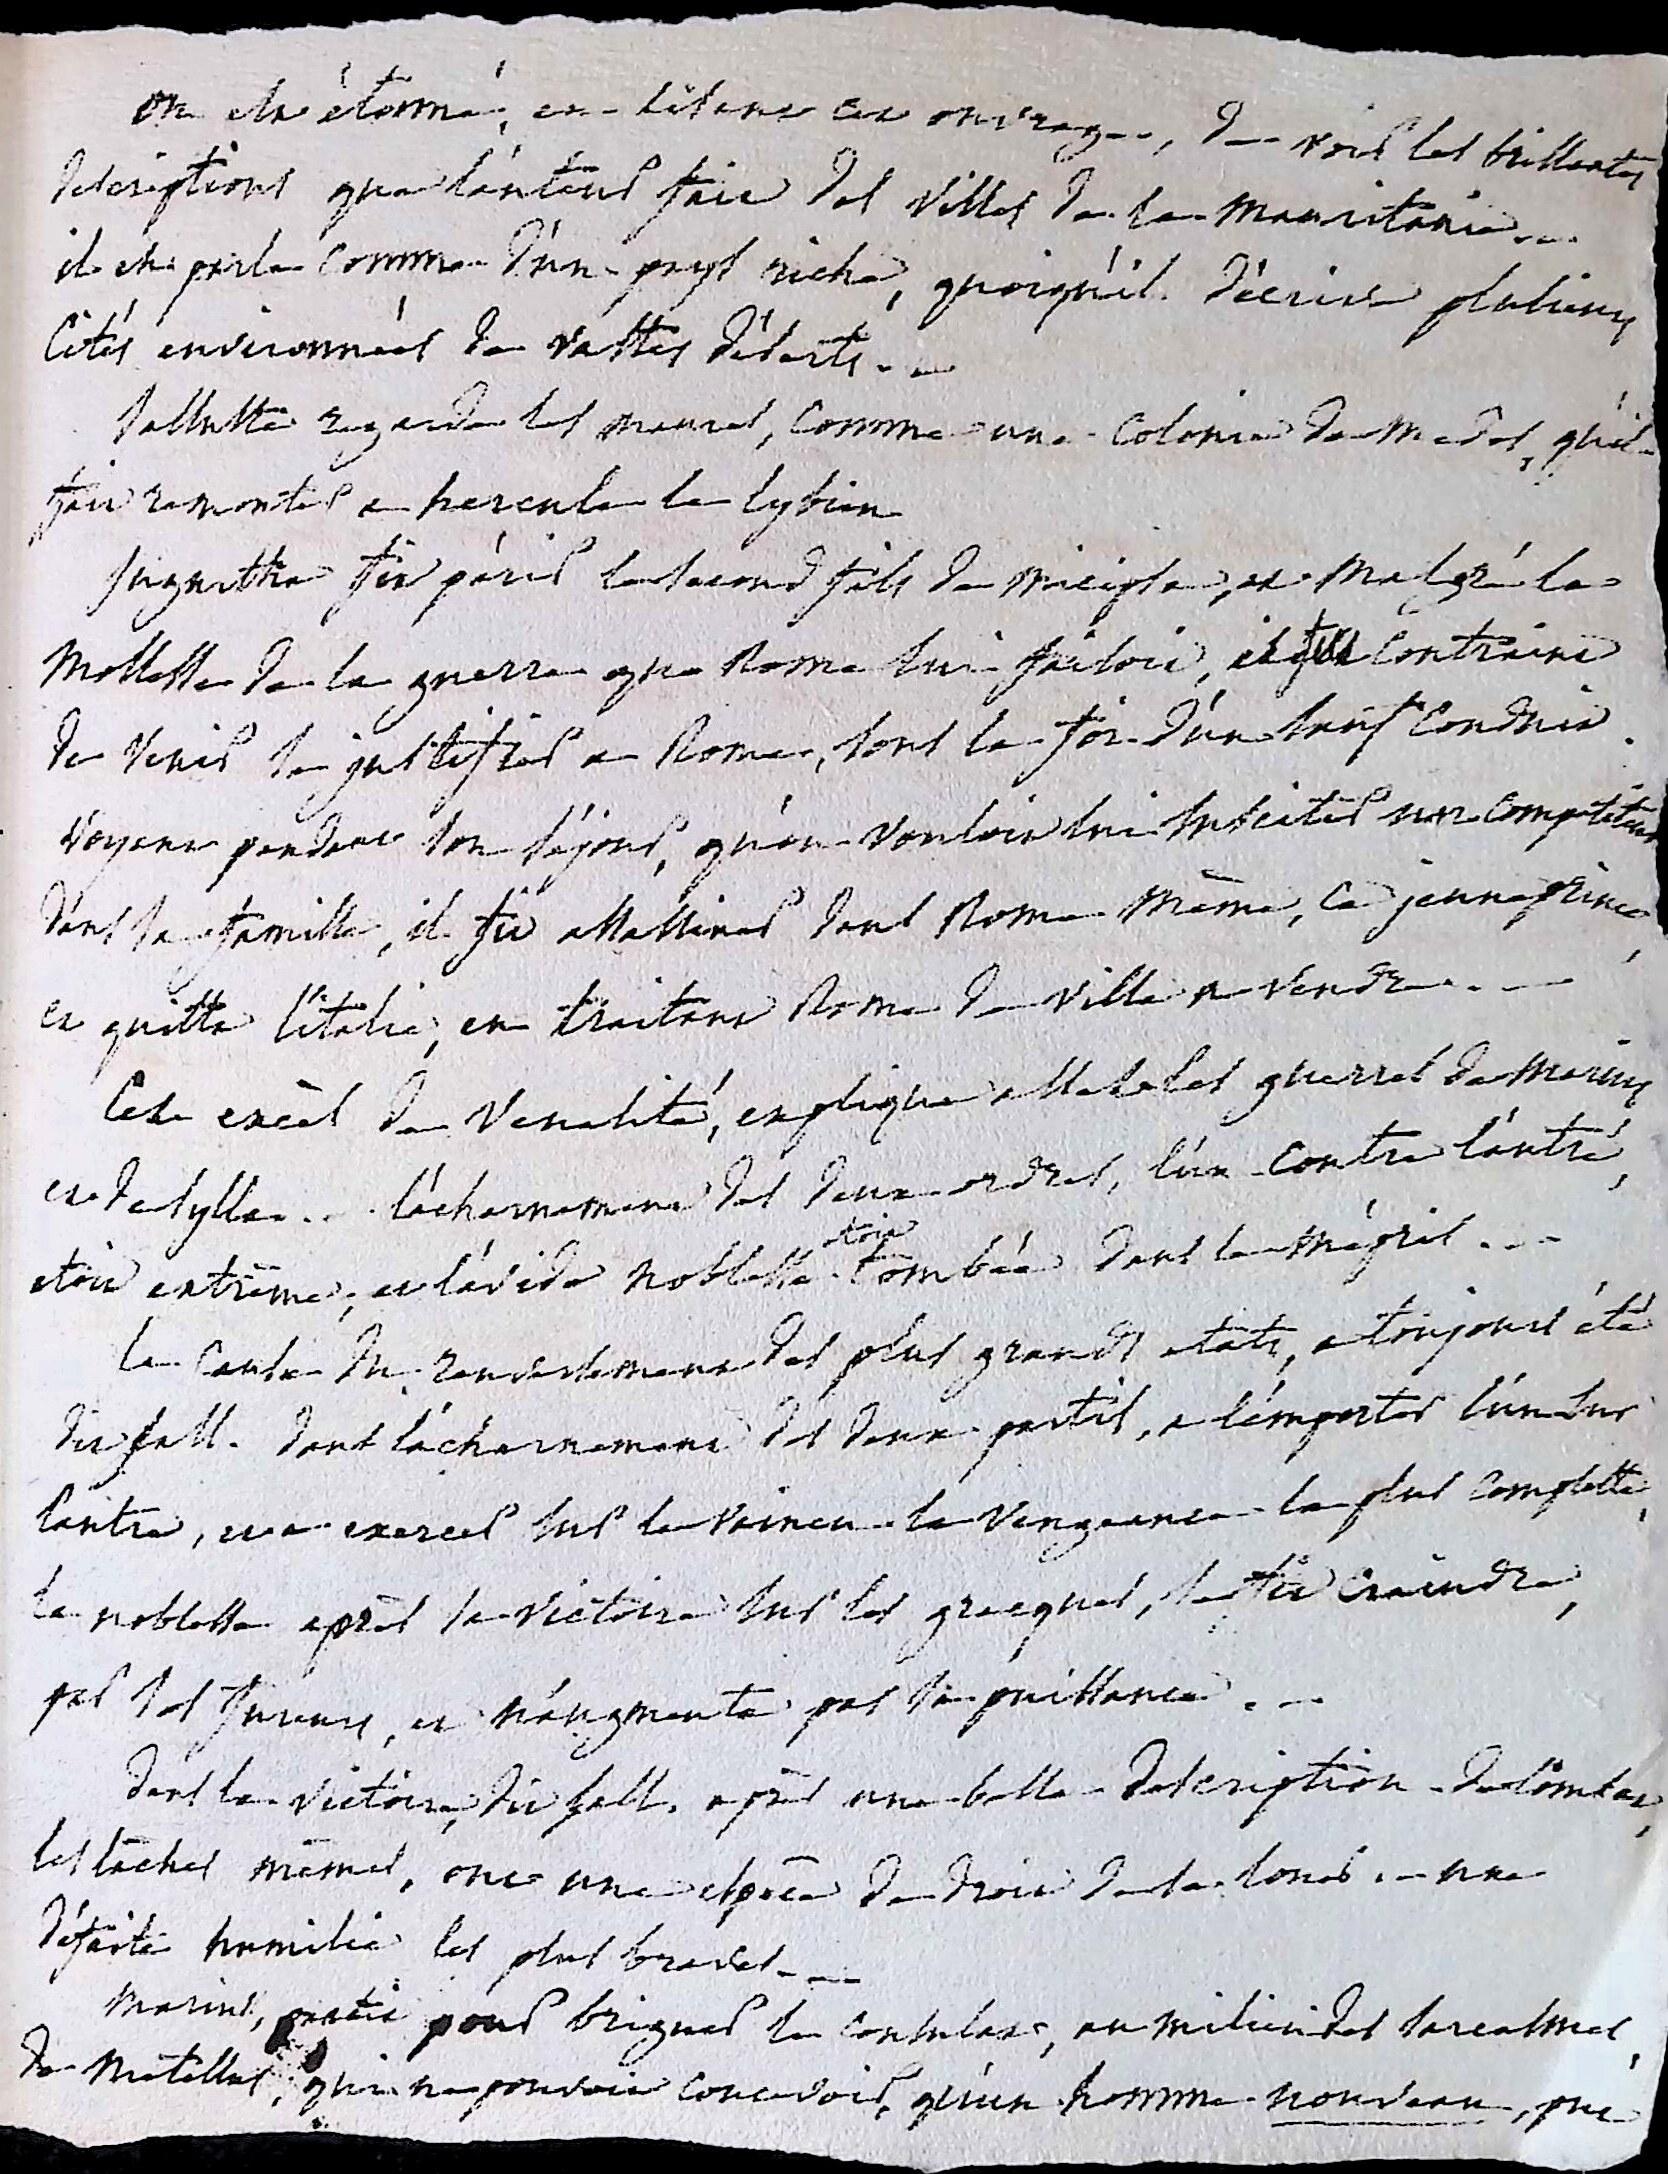 on est étonné, en lisant cet ouvrage, de voir les brillantes
descriptions que l'auteur fait des villes de la mauritanie...
il en parle comme d'un pays riche, quoiqu'il décrive plusieurs
cités environnées de vastes déserts...
Salluste regarde les maures, comme une colonie de medes, qu'il
fait remonter a hercule le lybien
Jugurtha fit périr le second fils de micipsa, et malgré la
mollesse de la guerre que Rome lui faisoit, il fut contraint
de venir se justifier a Rome, sous la foi d'un sauf conduit.
voyant pendant son séjour, qu'on vouloit lui susciter un compétiteur
dans sa famille, il fit assassiner dans Rome même, ce jeune prince,
et quitta l'italie, en traitant Rome de ville a vendre...
Cet excès de venalité, explique assez les guerres de marius
et de sylla... l'acharnement des deux ordres, l'un contre l'autre,
etoit extrême, et l'avide noblesse etoit tombée dans le mépris...
la cause du renversement des plus grands etats, a toujours été
dit sall. dans l'acharnement des deux partis, a l'emporter l'un sur
l'autre, et a exercer sur le vaincu la vengeance la plus complette,
la noblesse après sa victoire sur les gracques, se fit craindre,
par ses fureurs, et n'augmenta pas sa puissance...
dans la victoire, dit sall. après une belle description de combat,
les lâches mêmes, ont une espèce de droit de se louer... une
défaite humilie les plus braves...
marius, partit pour briguer le consulat, au milieu des sarcasmes,
de Metellus, qui ne pouvoit concevoir, qu'un homme nouveau, put